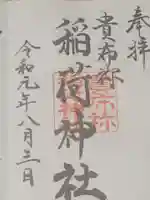 奉拝
貴布祢
稲荷神社
令和元年八月三日